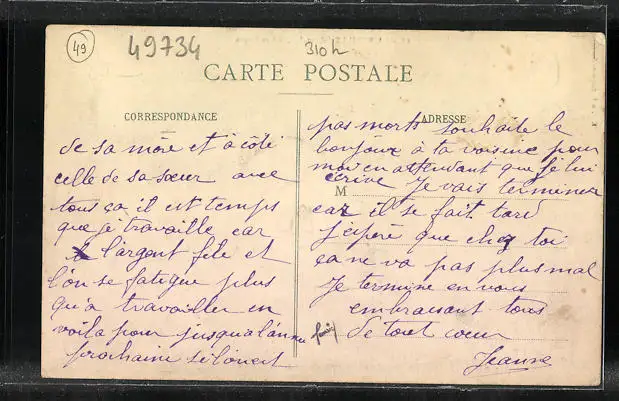 49
49734
310 h
CARTE POSTALE
CORRESPONDANCE
de sa mère et à côté
celle de sa sœur avec
tous ça il est temps
que je travaille car
l'argent file et
l'on se fatigue plus
qu'à travailler en
voila pour jusqua l'année
prochaine si l'on est
ADRESSE
pas morts souhaite le
bonjour à ta voisine pour
moi en attendant que je lui
écrive Je vais terminer
M
car il se fait tard
J'espère que chez toi
ça ne va pas plus mal
Je termine en vous
embrassant tous
de tout cœur
Jeanne